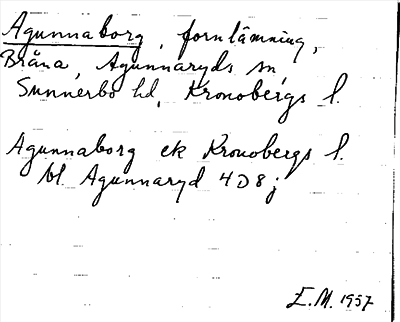 Agunnaborg, fornlämning,
Bråna, Agunnaryds sn,
Sunnerbo hd, Kronobergs l.
Agunnaborg ek Kronobergs l.
bl. Agunnaryd 4D8j
E.M. 1957